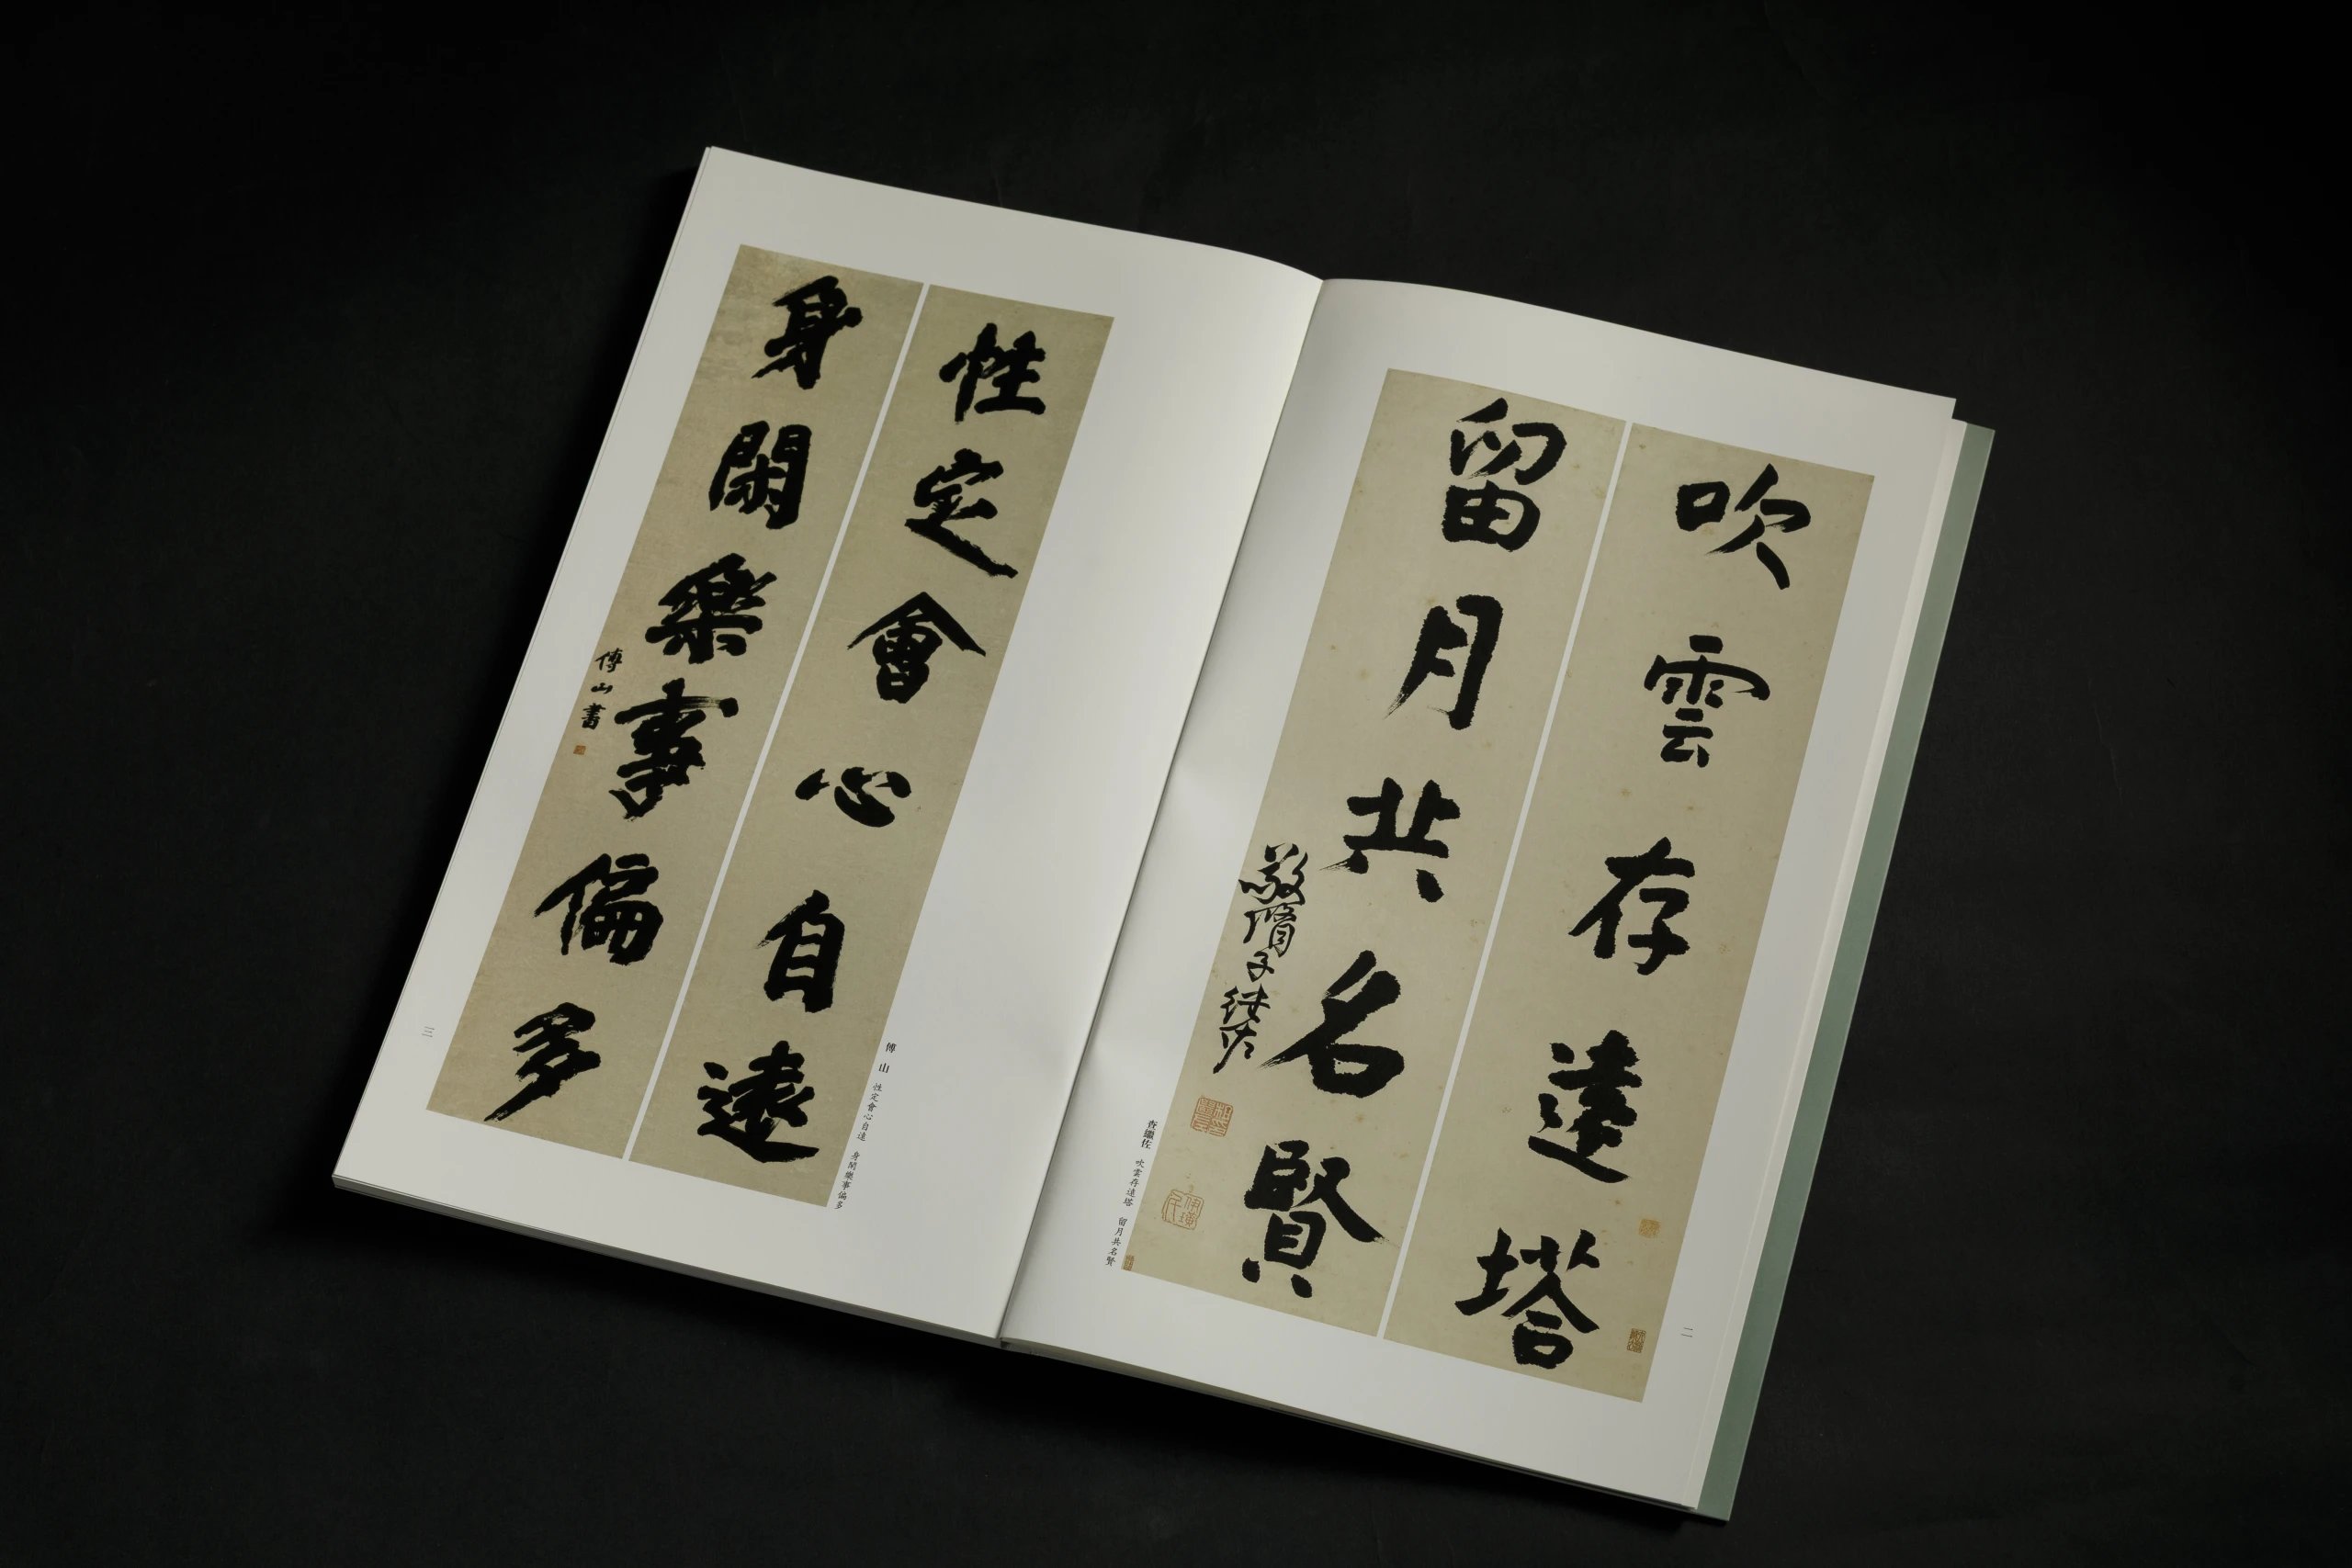 吹雲存遠塔
留月共名賢
敬脩子繼佐
查繼佐 吹雲存遠塔 留月共名賢
二
性定會心自遠
身閑樂事偏多
傅山書
傅山 性定會心自遠 身閑樂事偏多
三